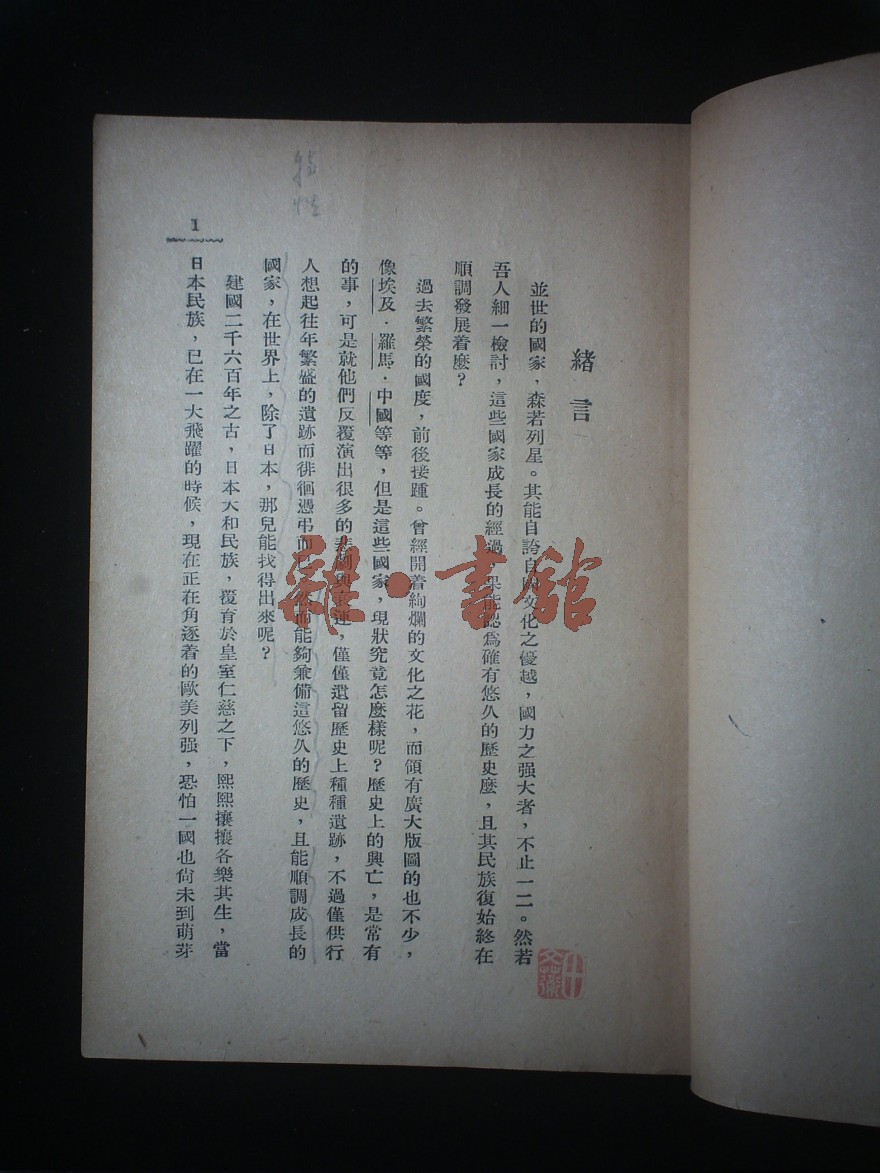 緒言
並世的國家，森若列星。其能自誇自國文化之優越，國力之强大者，不止一二。然若
吾人細一檢討，這些國家成長的經過，果能認爲確有悠久的歷史麽，且其民族復始終在
順調發展着麽？
過去繁榮的國度，前後接踵。曾經開着絢爛的文化之花，而領有廣大版圖的也不少，
像埃及．羅馬．中國等等，但是這些國家，現狀究竟怎麽樣呢？歷史上的興亡，是常有
的事，可是就他們反覆演出很多的悲劇與衰運，僅僅遺留歷史上種種遺跡，不過僅供行
人想起往年繁盛的遺跡而徘徊憑弔而已，然而能夠兼備這悠久的歷史，且能順調成長的
國家，在世界上，除了日本，那兒能找得出來呢？
建國二千六百年之古，日本大和民族，覆育於皇室仁慈之下，熙熙攘攘各樂其生，當
日本民族，已在一大飛躍的時候，現在正在角逐着的歐美列强，恐怕一國也尙未到萌芽
1
特性
雜·書館